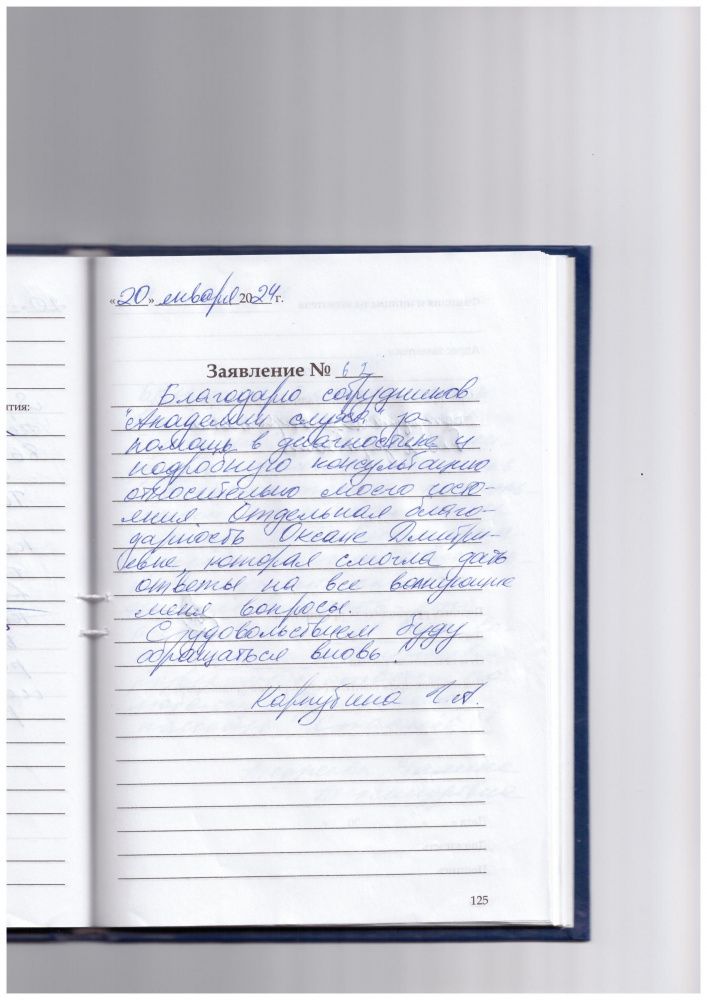 «20» января 2024 г.
Заявление № 62
Благодарю сотрудников
"Академии слуха" за
помощь в диагностике и
подробную консультацию
относительно моего состо-
яния. Отдельная благо-
дарность Оксане Дмитри-
евне, которая смогла дать
ответы на все волнующие
меня вопросы.
С удовольствием буду
обращаться вновь.
Карпубина А.
ития:
125